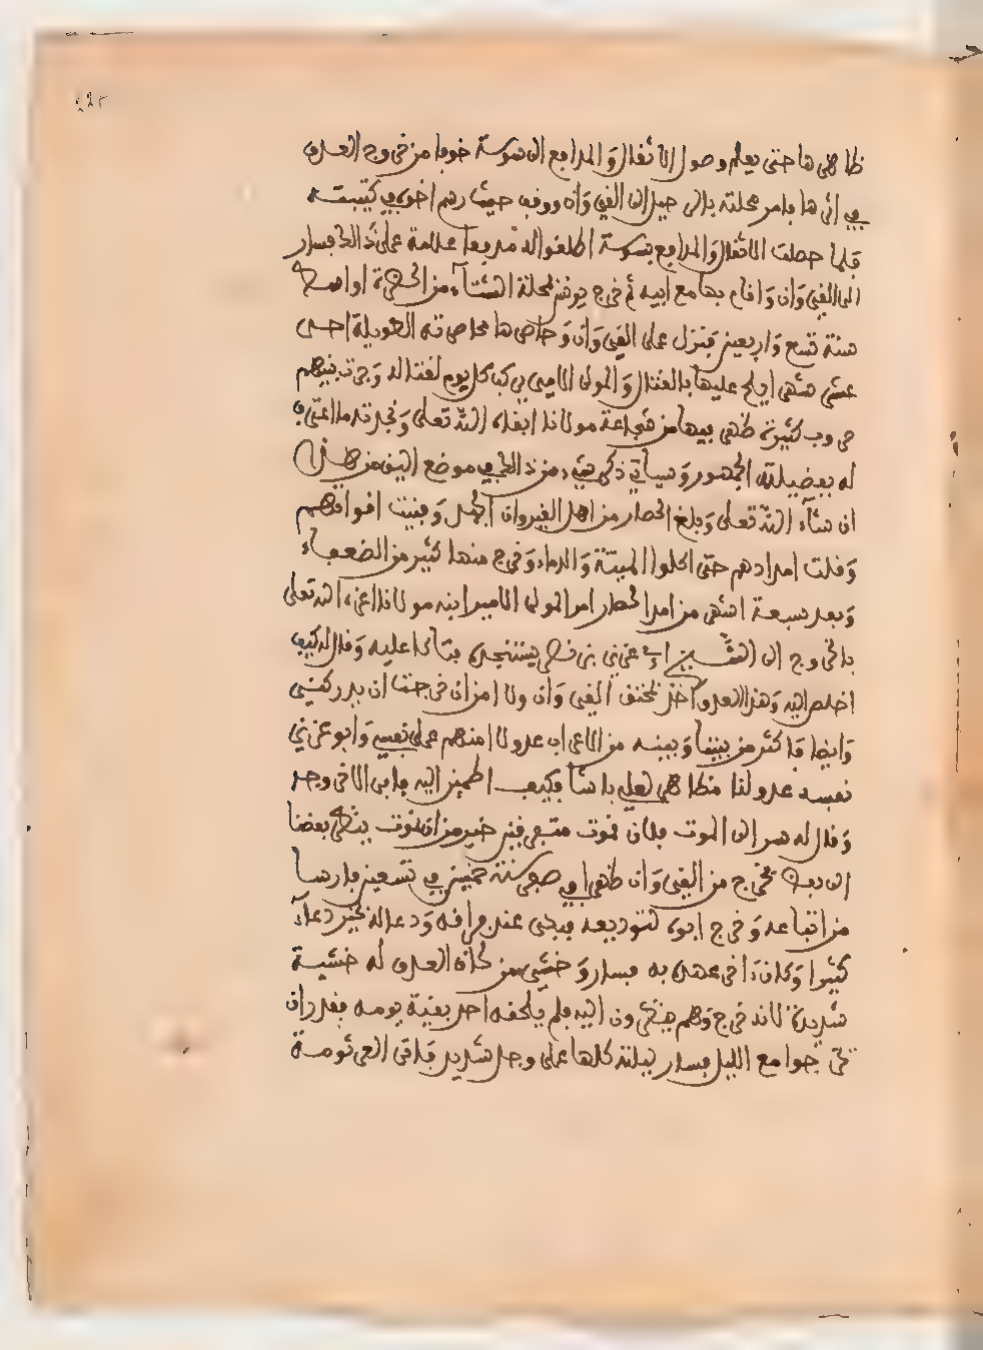 ظاهرها حتى يعلم وصول الاثقال والمدافع الى سوسة خوفا من خروج العدو
في اثرها فامر محلته بالرحيل الى القيروان ووقف حيث رسم اخوه في كتيبته
فلما حصلت الاثقال والمدافع بسوسة اطلقوا له مدفعا علامة على ذلك فسار
الى القيروان واقام بها مع ابيه ثم خرج يونس بمحلة الشتاء من الحضرة اواسط
سنة تسع واربعين فنزل على القيروان وحاصرها محاصرته الطويلة احدى
عشر شهرا يلح عليها بالقتال والمولى الامير يركب كل يوم لقتاله وجرت بينهم
حروب كثيرة ظهر فيها من شجاعة مولانا ابقاه الله تعالى ونجدته ما اعترف
له بفضيلته الجمهور وسياتي ذكر شيء من ذلك في موضع اليق من هذا
ان شاء الله تعالى وبلغ الحصار من اهل القيروان الجهد وفنيت اقواتهم
وقلت امدادهم حتى اكلوا الميتة والدماء وخرج منها كثير من الضعفاء
وبعد سبعة اشهر من امد الحصار امر المولى الامير ابنه مولانا اعزه الله تعالى
بالخروج الى ابي عزيز بن نصر يستنجده فتاكا عليه وقال له كيف
اخلص اليه وهذا العدو اخذ بمخنق القيروان ولا امن ان خرجنا ان يدركني
وايضا فاكثر من بيننا وبينه من الاعراب عدو لا امنهم على نفسي وابو عزيز
نفسه عدو لنا مظاهر لعلي باشا فكيف اطمئن اليه فابى الا خروجه
وقال له سر الى الموت فلان نموت متفرقين خير من ان نموت ينظر بعضنا
الى بعض فخرج من القيروان ظهرا في صفر سنة خمسين في تسعين فارسا
من اتباعه وخرج ابوه لتوديعه فبكى عند فراقه ودعا له بخير دعاء
كثيرا وكان اخر عهده به فسار وخشي من لحاق العدو له خشية
شديدة لانه خرج وهم ينظرون اليه فلم يلحقه احد بقية يومه بقدر ان
خرجوا مع الليل فسار ليلته كلها على وجل شديد فلاقى العرثومة